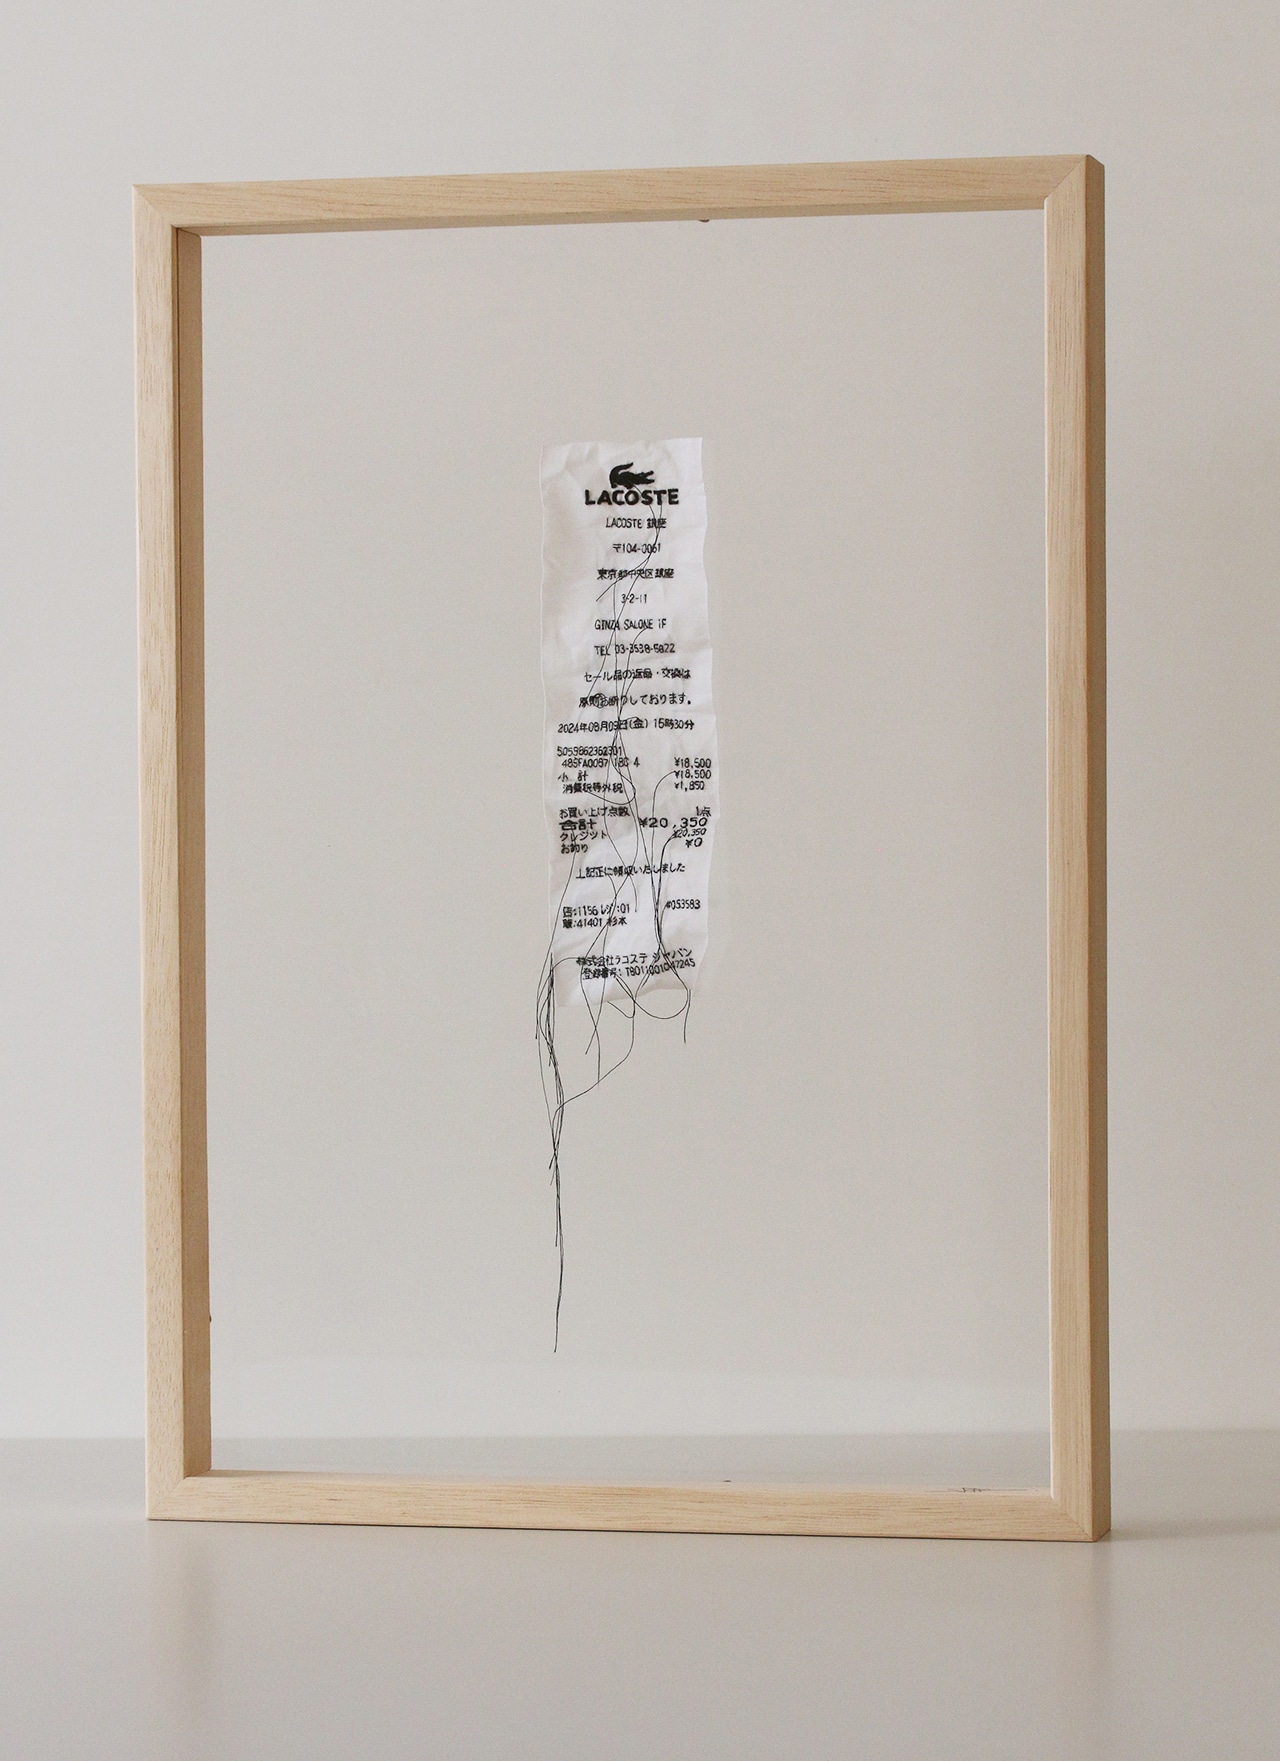 LACOSTE
LACOSTE 銀座
〒104-0061
東京都中央区銀座
3-2-11
GINZA SALONE 1F
TEL 03-3538-5822
セール品の返品・交換は
原則お断りしております。
2024年08月09日(金) 15時30分
5059862362301
48SFA0097 18C 4 ¥18,500
小 計 ¥18,500
消費税等外税 ¥1,850
お買い上げ点数 1点
合計 ¥20,350
クレジット ¥20,350
お釣り ¥0
上記正に領収いたしました
店:1156 レジ:01 #053583
職:41401 杉本
株式会社ラコステ ジャパン
登録番号: T8011001047245